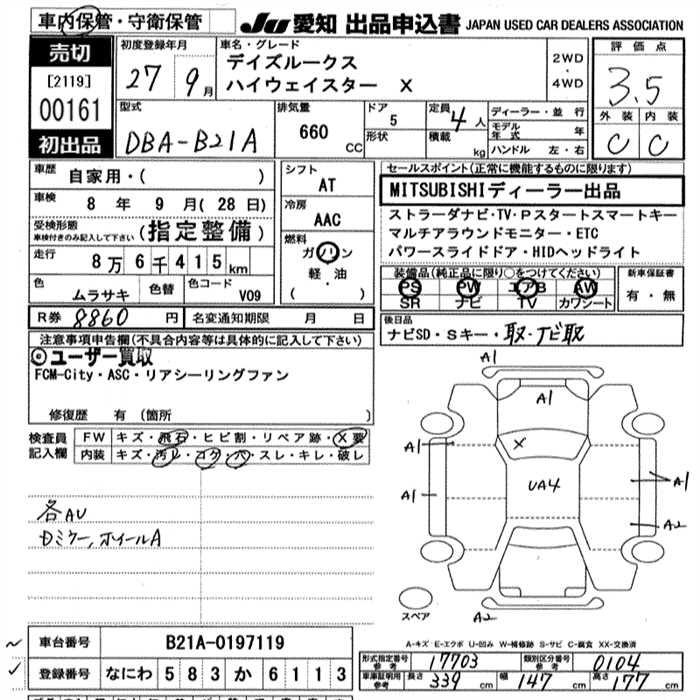 車内保管・守衛保管
JU 愛知 出品申込書 JAPAN USED CAR DEALERS ASSOCIATION
売切
[2119]
00161
初出品
初度登録年月
27 9月
車名・グレード
デイズルークス
ハイウェイスター X
2WD
・
4WD
評価点
3.5
外装 内装
C C
型式
DBA-B21A
排気量
660 CC
ドア
5
形状
定員 4人
積載 kg
ディーラー・並行
モデル年式 年
ハンドル 左・右
車歴 自家用・( )
車検 8年9月(28日)
受検形態
車検付きのみ記入して下さい
(指定整備)
走行 8万6千415km
色 ムラサキ
色替
色コード V09
シフト
AT
冷房
AAC
燃料
ガソリン
軽・油
( )
セールスポイント(正常に機能するものに限ります)
MITSUBISHIディーラー出品
ストラーダナビ・TV・Pスタートスマートキー
マルチアラウンドモニター・ETC
パワースライドドア・HIDヘッドライト
装備品(純正品に限り○をつけてください)
PS PW エアB AW
SR ナビ TV カワシート
新車保証書
有・無
R券 8860円
名変通知期限 月 日
後日品
ナビSD・Sキー・取・ナビ取
注意事項申告欄(不具合内容等は具体的に記入して下さい)
◎ユーザー買取
FCM-City・ASC・リアシーリングファン
修復歴 有(箇所 )
検査員記入欄
FW キズ・飛石・ヒビ割・リペア跡・X要
内装 キズ・汚レ・コゲ・穴・スレ・キレ・破レ
各AU
Dミラー,ホイールA
A1
A1
X
A1
A1
UA4
A1
A2
A2
スペア
A-キズ E-エクボ U-凹み W-補修跡 S-サビ C-腐食 XX-交換済
車台番号 B21A-0197119
登録番号 なにわ 583 か 6113
型式指定番号参考 17703
類別区分番号参考 0104
車庫証明用参考 長さ 339cm 幅 147cm 高さ 177cm